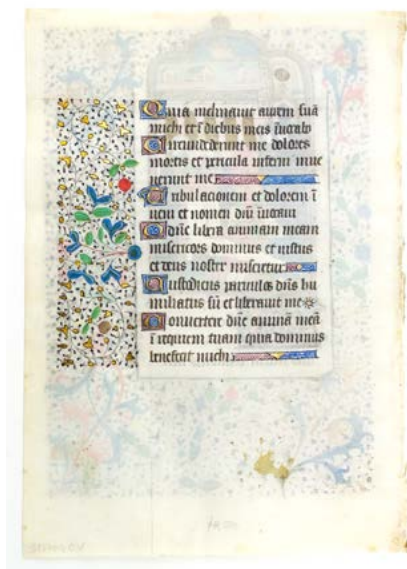 Quia inclinauit aurem suā
michi et ī diebus meis īuocabo
Circundederunt me dolores
mortis et pericula inferni inue
nerunt me
Tribulacionem et dolorem ī
ueni et nomen dñi īuocaui
O dñe libera animam meam
misericors dominus et iustus
et deus noster miseretur
Custodiens paruulos dñs hu
miliatus sū et liberauit me
Conuertere dñe animā meā
ī requiem tuam quia dominus
benefecit michi